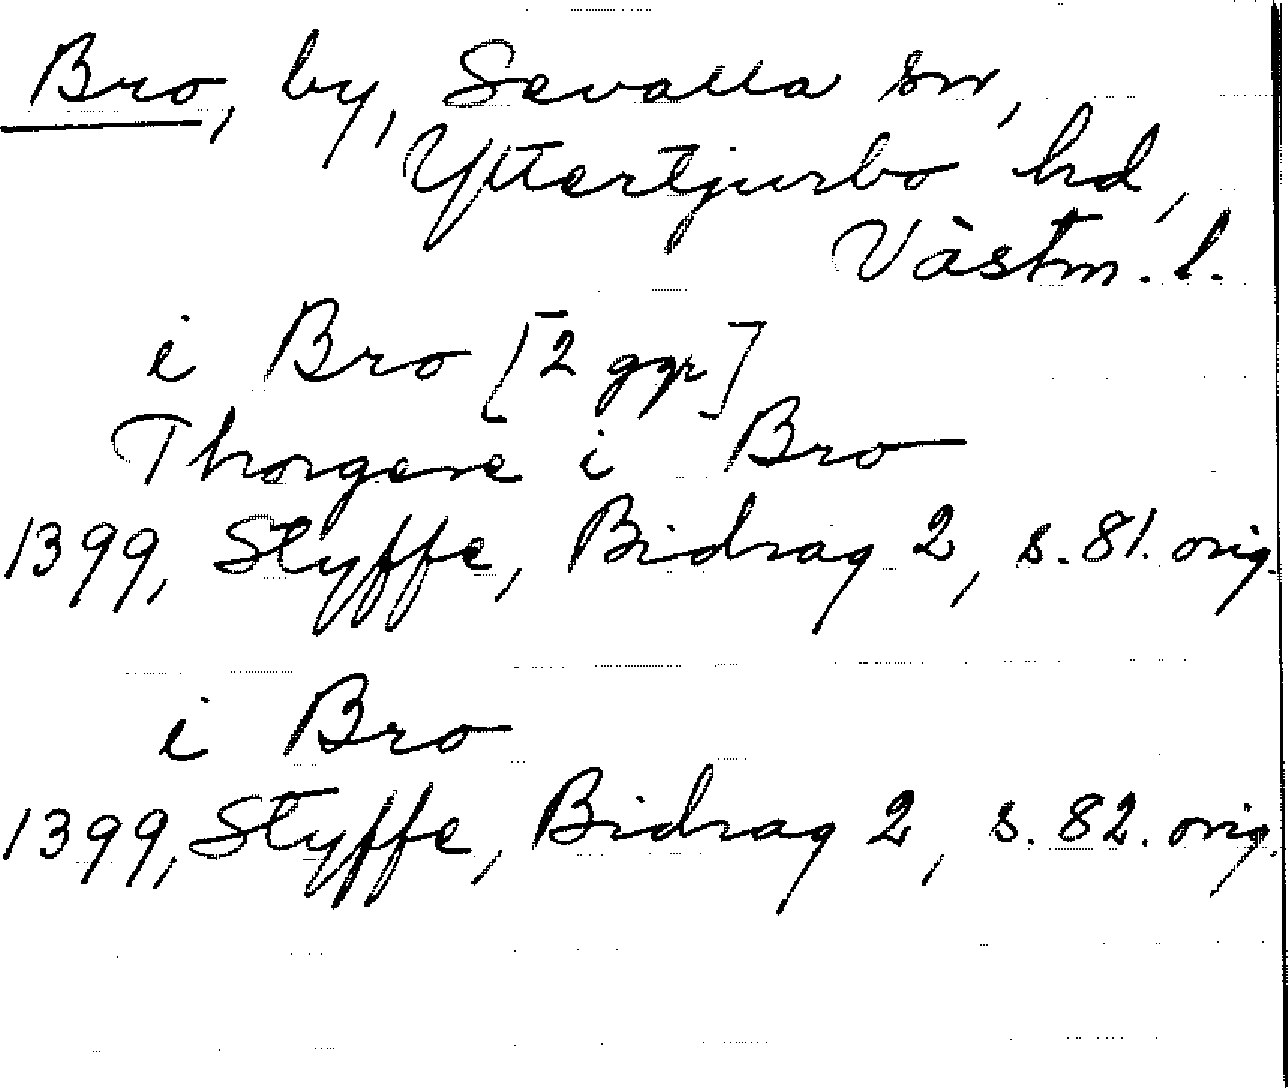 Bro, by, Sevalla sn,
Yttertjurbo hd,
Västm. l.
i Bro [2 ggr]
Thorgere i Bro
1399, Styffe, Bidrag 2, s. 81. orig.
i Bro
1399, Styffe, Bidrag 2, s. 82. orig.